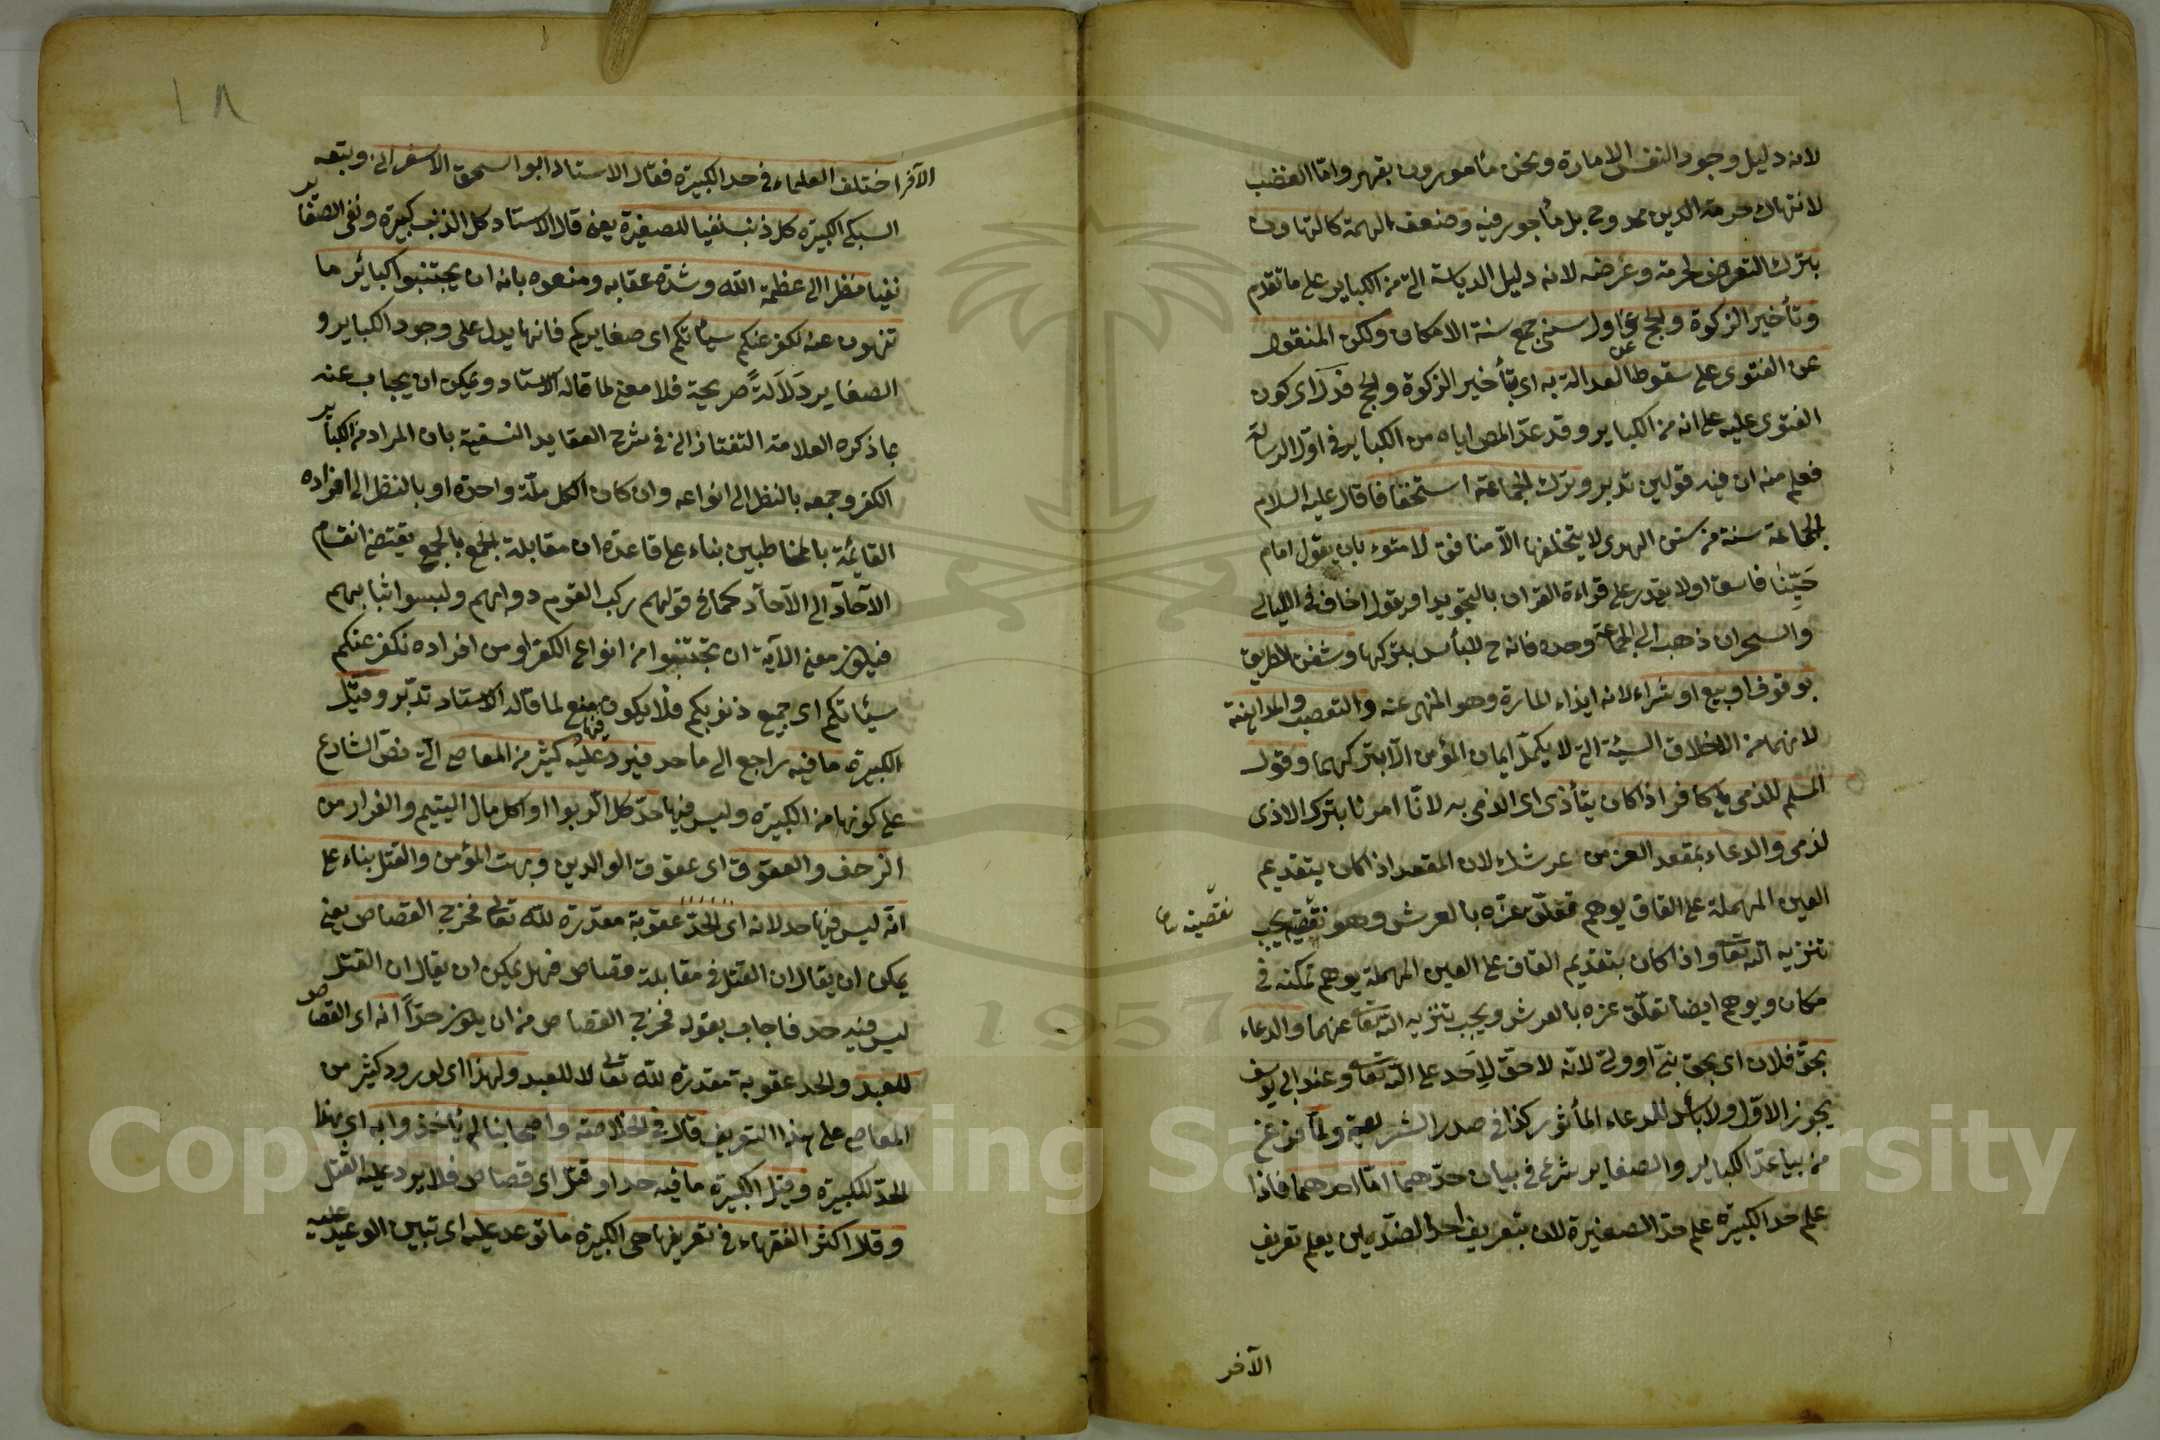 لانه دليل وجود النفس الامارة ونحن مأمورون بقهر واما الغضب
لانتهاك حرمة الدين ممدوح بل مأجور فيه وضعف الهمة كالتهاون
بترك التعرض لحرمه وعرضه لانه دليل الدياثة التي من الكباير على ما تقدم
وتأخير الزكوة والحج عن اول سني جمع سنة الامكان ولكن المنقول
عن الفتوى على سقوط العدالة به اى بتأخير الزكوة والحج فدل اى كون
الفتوى عليه على انه من الكباير وقد عد المص اياه من الكباير في اول الرسالة
فعلم منه ان فيه قولين تدبر وترك الجماعة استخفافا قال عليه السلام
الجماعة سنة من سنن الهدى لا يتخلفها الا منافق لا متوء بان يقول امام
حينا فاسق او لا يقدر على قراءة القران بالتجويد او يقول اخاف في الليالى
والسحر ان ذهب الى الجماعة وحده فانه ح لا بأس بتركها وشغل الطريق
بوقوف او بيع او شراء لانه ايذاء المارة وهو المنهى عنه والتعصب والمداهنة
لانهما من الاخلاق السيئة التي لا يكمل ايمان المؤمن الا بتركهما وقول
المسلم للذمى يا كافر اذا كان يتأذى اى الذمى به لانا امرنا بترك الاذى
لذمى والدعاء بمقعد العز من عرشك لان المقعد اذا كان بتقديم
العين المهملة على القاف يوهم تعلق عزه بالعرش وهو نقص يجب
نقصينه
تنزيه الله تعالى واذا كان بتقديم القاف على العين المهملة يوهم تمكنه في
مكان ويوهم ايضا تعلق عزه بالعرش ويجب تنزيه الله تعالى عنهما والدعاء
بحق فلان اى بحق نبى او ولى لانه لا حق لاحد على الله تعالى وعند ابى يوسف
يجوز الاول ولا بأس للدعاء المأثور كذا في صدر الشريعة ولما فرغ
من بيا عد الكباير والصغاير شرع في بيان حدهما اما احدهما فاذا
علم حد الكبيرة علم حد الصغيرة لان بتعريف احد الضدين يعلم تعريف
الآخر
١٨
الآخر اختلف العلماء في حد الكبيرة فقال الاستاد ابو اسحق الاسفراني وتبعه
السبكى الكبيرة كل ذنب نفيا للصغيرة يعنى قال الاستاد كل الذنب كبيرة ونفى الصغاير
نفيا نظرا الى عظمة الله وشدة عقابه ومنعوه بانه ان يجتنبوا كبائر ما
تنهون عنه نكفر عنكم سيأتكم اى صغايركم فانها يدل على وجود الكباير و
الصغاير دلالة صريحة فلا معنى لما قاله الاستاد ويمكن ان يجاب عنه
بما ذكره العلامة التفتازانى في شرح العقايد النسفية بان المراد من الكباير
الكفر وجمعه بالنظر الى انواعه وان كان الكل ملة واحدة او بالنظر الى افراده
القائمة بالمخاطبين بناء على قاعدة ان مقابلة الجمع بالجمع يقتضى انقسام
الآحاد الى الآحاد كما في قولهم ركب القوم دوابهم ولبسوا ثيابهم
فيكون معنى الآية ان تجتنبوا من انواع الكفر او من افراده نكفر عنكم
سيئاتكم اى جميع ذنوبكم فلا يكون منع لما قاله الاستاد تدبر وقيل
الكبيرة ما فيه راجع الى ما حد فيرد عليه كثير من المعاصى التي نص الشارع
على كونها من الكبيرة وليس فيها حد كل الربوا او اكل مال اليتيم والفرار من
الزحف والعقوق اى عقوق الوالدين وبهت المؤمن والقتل بناء على
انه ليس فيها حد لانه اى الحد عقوبة مقدرة لله تعالى فخرج القصاص يعنى
يمكن ان يقال ان القتل في مقابلة قصاص فهل يمكن ان يقال ان القتل
ليس فيه حد فاجاب بقوله فخرج القصاص من ان يكون حداً انه اى القصاص
للعبد والحد عقوبة مقدرة لله تعالى لا للعبد ولهذا اى لورود كثير من
المعاصى على هذا التعريف قال في الخلاصة واصحابنا لم يأخذوا به اى بهذا
الحد للكبيرة وقيل الكبيرة ما فيه حد او قتل اى قصاص فلا يرد عليه القتل
وقال اكثر الفقهاء في تعريفها هى الكبيرة ما توعد عليه اى تبين الوعيد عليه
Copyright © King Saud University
1957